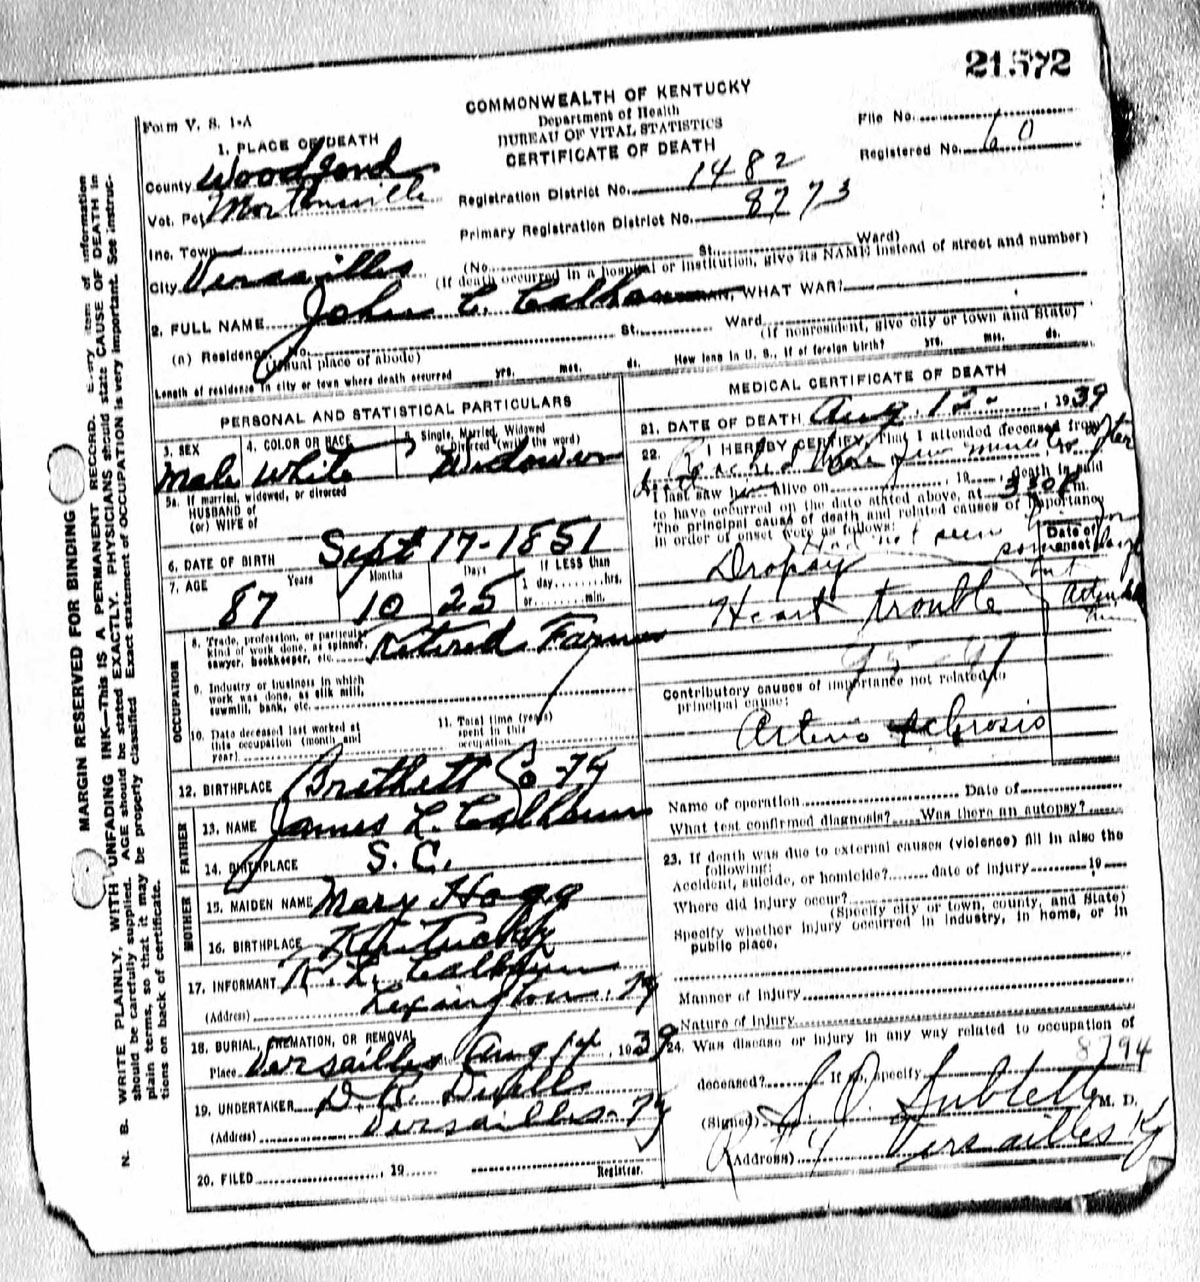 21572
COMMONWEALTH OF KENTUCKY
Department of Health
BUREAU OF VITAL STATISTICS
CERTIFICATE OF DEATH
Form V. S. 1-A
File No.
Registered No. 60
1. PLACE OF DEATH
County Woodford
Vot. Pct Mortonsville
Inc. Town
City Versailles
Registration District No. 1482
Primary Registration District No. 8273
(No. St. Ward)
(If death occurred in a hospital or institution, give its NAME instead of street and number)
2. FULL NAME John C. Calhoun
WHAT WAR?
(a) Residence. No. St. Ward
(Usual place of abode) (If nonresident, give city or town and State)
Length of residence in city or town where death occurred yrs. mos. ds. How long in U. S., if of foreign birth? yrs. mos. ds.
PERSONAL AND STATISTICAL PARTICULARS
3. SEX 4. COLOR OR RACE 5. Single, Married, Widowed
or Divorced (write the word)
Male White Widower
5a. If married, widowed, or divorced
HUSBAND of
(or) WIFE of
6. DATE OF BIRTH Sept 17-1851
7. AGE Years Months Days If LESS than
1 day hrs.
or min.
87 10 25
OCCUPATION
8. Trade, profession, or particular
kind of work done, as spinner,
sawyer, bookkeeper, etc. Retired Farmer
9. Industry or business in which
work was done, as silk mill,
sawmill, bank, etc.
10. Date deceased last worked at
this occupation (month and
year)
11. Total time (years)
spent in this
occupation
12. BIRTHPLACE Brethett Co - Ky
FATHER
13. NAME James L. Calhoun
14. BIRTHPLACE S. C.
MOTHER
15. MAIDEN NAME Mary Hogg
16. BIRTHPLACE Kentucky
17. INFORMANT R. L. Calhoun
(Address) Lexington, Ky
18. BURIAL, CREMATION, OR REMOVAL
Place Versailles Aug 14, 1939
19. UNDERTAKER
(Address) Versailles - Ky
20. FILED , 19
Registrar.
MEDICAL CERTIFICATE OF DEATH
21. DATE OF DEATH Aug. 12 - , 1939
22. I HEREBY CERTIFY, That I attended deceased from
Reached here few minutes after
death
I last saw him alive on , 19 , death is said
to have occurred on the date stated above, at 3:30 P. m.
The principal cause of death and related causes of importance
in order of onset were as follows:
Date of
onset
Had not seen him for
some days
but
Dropsy
Heart trouble
95-97
Contributory causes of importance not related to
principal cause:
Arterio Sclerosis
Name of operation Date of
What test confirmed diagnosis? Was there an autopsy?
23. If death was due to external causes (violence) fill in also the
following:
Accident, suicide, or homicide? date of injury 19
Where did injury occur?
(Specify city or town, county, and State)
Specify whether injury occurred in industry, in home, or in
public place.
Manner of injury
Nature of injury
24. Was disease or injury in any way related to occupation of
8794
deceased? If so, specify
(Signed) S. D. Sublett M. D.
(Address) R #4 Versailles Ky
MARGIN RESERVED FOR BINDING
N. B. WRITE PLAINLY, WITH UNFADING INK—THIS IS A PERMANENT RECORD. Every item of information
should be carefully supplied. AGE should be stated EXACTLY. PHYSICIANS should state CAUSE OF DEATH in
plain terms, so that it may be properly classified. Exact statement of OCCUPATION is very important. See instruc-
tions on back of certificate.